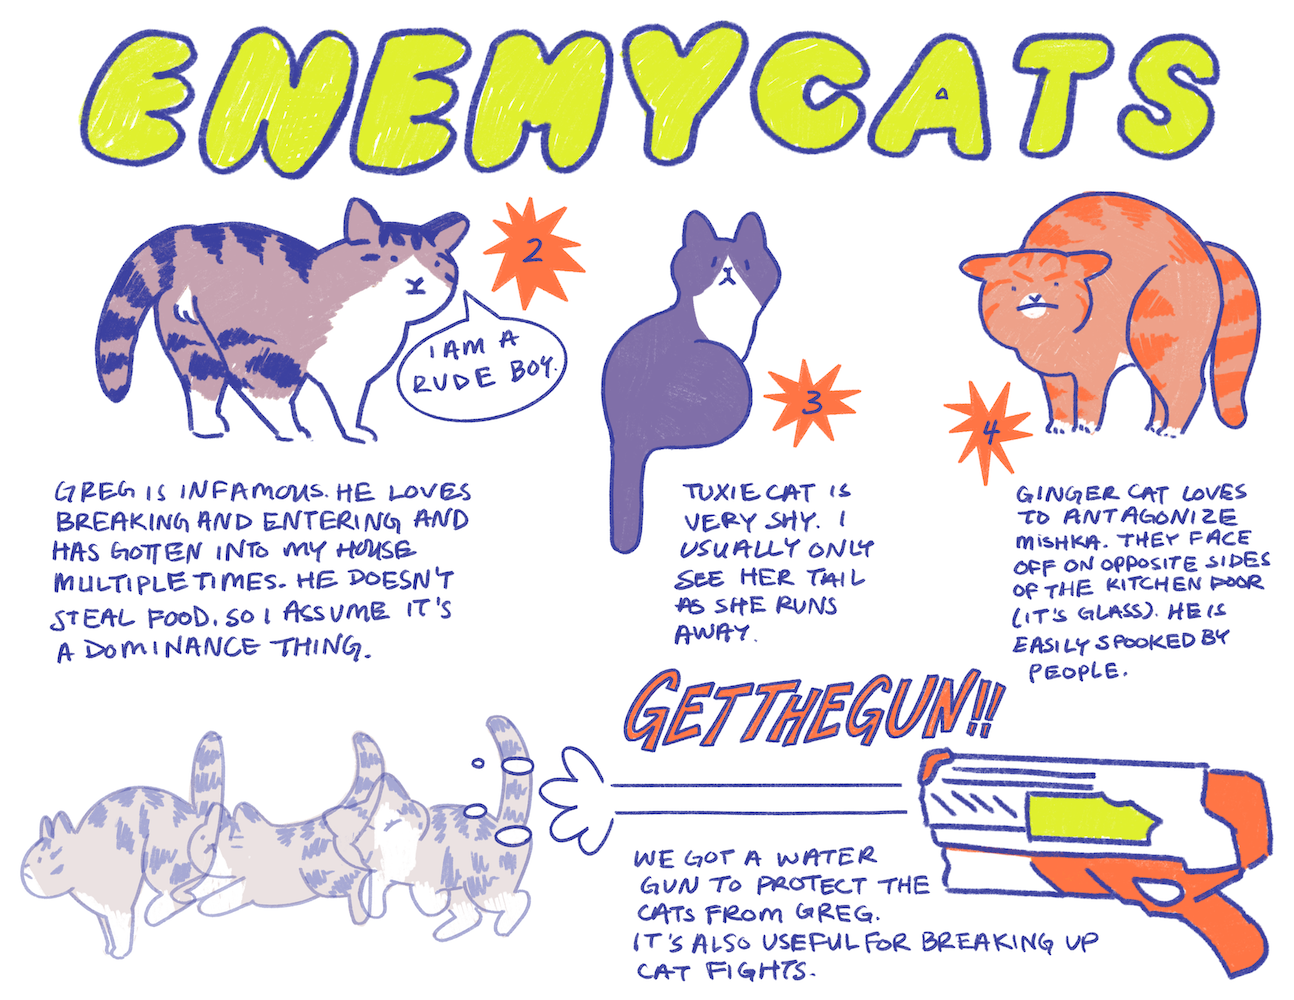 ENEMYCATS
2
I AM A
RUDE BOY.
3
4
GREG IS INFAMOUS. HE LOVES
BREAKING AND ENTERING AND
HAS GOTTEN INTO MY HOUSE
MULTIPLE TIMES. HE DOESN'T
STEAL FOOD. SO I ASSUME IT'S
A DOMINANCE THING.
TUXIE CAT IS
VERY SHY. I
USUALLY ONLY
SEE HER TAIL
AS SHE RUNS
AWAY.
GINGER CAT LOVES
TO ANTAGONIZE
MISHKA. THEY FACE
OFF ON OPPOSITE SIDES
OF THE KITCHEN DOOR
(IT'S GLASS). HE IS
EASILY SPOOKED BY
PEOPLE.
GET THE GUN!!
WE GOT A WATER
GUN TO PROTECT THE
CATS FROM GREG.
IT'S ALSO USEFUL FOR BREAKING UP
CAT FIGHTS.